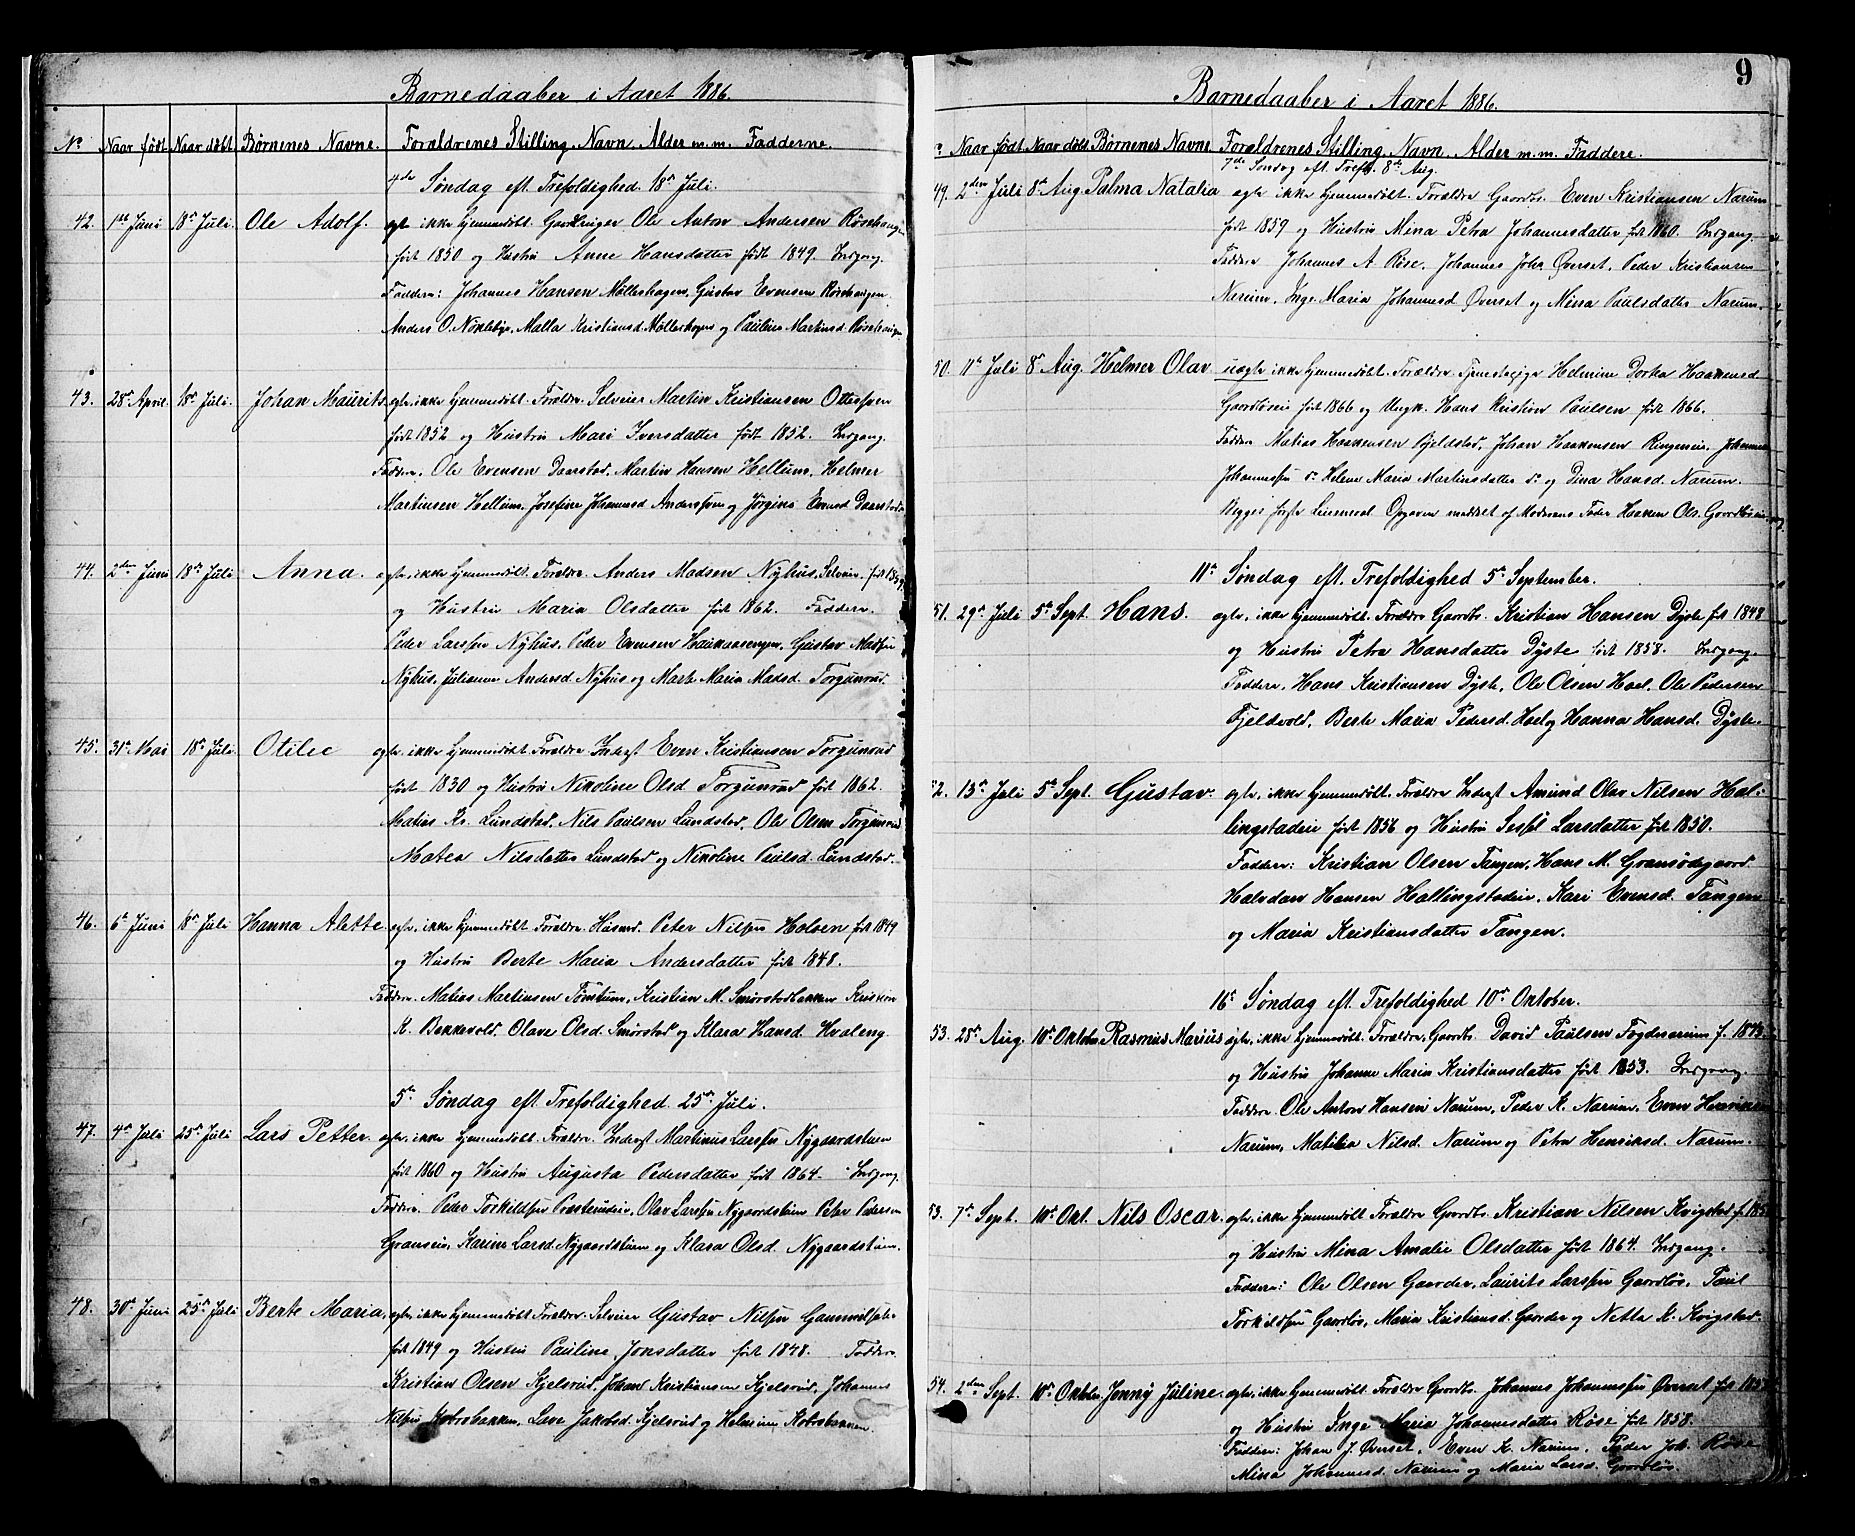 Barnedaaber i Aaret 1886.
No Naar født Naar døbt Børnenes Navne. Forældrenes Stilling, Navn, Alder m.m. Fadderne.
4de Søndag eft. Trefoldighed. 18de Juli.
42. 1ste Juni 18de Juli. Ole Adolf. ægte ikke hjemmedøbt. Ole Anton Andersen
født 1850 og Hustru Anne Hansdatter født 1849. Indgang.
Faddere: Johannes Hansen Møllerhagen, Gustav Evensen
Anders O. Nøkleby, Malla Kristiansd. Møllerhagen og Pauline Martinsd.
43. 28de April. 18de Juli. Johan Maurits. ægte, ikke hjemmedøbt. Forældre. Selveier Martin Kristiansen
født 1852 og Hustru Mari Iversdatter født 1852. Indgang.
Faddere. Ole Evensen Daarstad, Martin Hansen Hellum, Helmer
Martinsen Hellum, Josefine Johannesd. og Jørgine Evensd. Daarstad
44. 2den Juni 18de Juli Anna. ægte, ikke hjemmedøbt. Forældre. Anders Madsen Nyhus, Selveier, født
og Hustru Maria Olsdatter født 1862. Faddere.
Peder Larssen Nyhus, Peder Evensen Gustav Madssen
Nyhus, Julianne Andersd. Nyhus og Marte Maria Madsd. Torgunrud.
45. 31te Mai 18de Juli Otilie ægte ikke hjemmedøbt Forældre Inderst Even Kristiansen Torgunrud
født 1830 og Hustru Nikoline Olsd. Torgunrud født 1862.
Matias Kr. Lundstad, Nils Paulsen Lundstad, Ole Olsen Torgunrud
Matea Nilsdatter Lundstad og Nikoline Paulsd. Lundstad.
46. 6te Juni 18de Juli Hanna Alette. ægte, ikke hjemmedøbt. Forældre. Husmd. Peter Nilsen født 1849
og Hustru Berte Maria Andersdatter født 1848.
Faddere. Matias Martinsen Kristian M. Smørstadbakken Kristian
K. Bakkevold. Olave Olsd. Smørstad og Klara Hansd. Hvaleng.
5te Søndag eft. Trefoldighed. 25de Juli.
47. 4de Juli 25de Juli Lars Petter. ægte, ikke hjemmedøbt. Forældre. Inderst Martinus Larssen Nygaardstuen
født 1860 og Hustru Augusta Pedersdatter født 1864. Indgang.
Faddere. Peder Torkildsen Olav Larssen Nygaardstuen Peter Pedersen
Granseie, Karine Larsd. Nygaardstuen og Klara Olsd. Nygaardstuen.
48. 30te Juni 25de Juli Berte Maria. ægte, ikke hjemmedøbt Forældre. Selveier Gustav Nilssen
født 1849 og Hustru Pauline Jonsdatter født 1848. Faddere.
Kristian Olsen Kjelsrud, Johan Kristiansen Kjelsrud, Johannes
Nilssen Lave Jakobsd. Kjelsrud og Helmine
9
Barnedaaber i Aaret 1886.
Naar født Naar døbt Børnenes Navne Forældrenes Stilling, Navn, Alder m.m. Faddere.
7de Søndag eft. Trefh. 8de Aug.
49. 2den Juli 8de Aug. Palma Natalia ægte ikke hjemmedøbt. Forældre Gaardbr. Even Kristiansen Narum
født 1859 og Hustru Mina Petra Johannesdatter født 1860. Indgang.
Faddere Johannes A. Røse, Johannes Joh. Øverset, Peder Kristiansen
Narum, Inge Maria Johannesd. Øverset og Mina Paulsdatter Narum.
50. 11te Juli 8de Aug. Helmer Olav uægte ikke hjemmedøbt. Forældre Tjenestepige Helmine Dortea Haakensd.
født 1866 og Ungk. Hans Kristian Paulsen født 1866.
Faddere Matias Haakensen Bjeldstad, Johan Haakensen Ringeneie,
Johannessen Do Helene Maria Martinsdatter Do og Dina Hansd. Narum.
Begges første Leiermaal Opgaven meddelt af Moderens Fader Haaken Ols.
11te Søndag eft. Trefoldighed 5te September.
51. 29de Juli 5te Sept. Hans. ægte, ikke hjemmedøbt. Forældre Gaardbr. Kristian Hansen Dyste født 1848
og Hustru Petra Hansdatter Dyste født 1858. Indgang.
Faddere. Hans Kristiansen Dyste, Ole Olsen Hoel, Ole Pedersen
Fjeldvold, Berte Maria Pedersd. Hoel og Hanna Hansd. Dyste.
52. 13de Juli 5te Sept. Gustav. ægte, ikke hjemmedøbt. Forældre Inderst Amund Olav Nilsen Hal-
lingstadeie født 1856 og Hustru Larsdatter født 1850.
Faddere: Kristian Olsen Tangen, Hans M. Gransødegaard
Halvdan Hansen Hallingstadeie, Kari Evensd. Tangen
og Maria Kristiansdatter Tangen.
16de Søndag eft. Trefoldighed 10de Oktober.
53. 28de Aug. 10de Oktober Rasmus Marius ægte, ikke hjemmedøbt. Forældre, Gaardbr. David Paulsen Fogdenarum f. 1843
og Hustru Johanne Maria Kristiansdatter født 1853. Indgang.
Faddere. Ole Anton Hansen Narum, Peder K. Narum, Even
Narum, Matilda Nilsd. Narum og Petra Henriksd. Narum.
53. 7de Sept. 10de Okt. Nils Oscar. ægte, ikke hjemmedøbt Forældre Gaardbr. Kristian Nilsen Kvigstad
og Hustru Mina Amalie Olsdatter født 1864. Indgang.
Faddere: Ole Olsen Gaarder, Laurits Larssen Gaardløs, Paul
Torkildsen Gaardløs, Maria Kristiansd. Gaarder og Netta K. Kvigstad.
54. 2den Sept. 10de Oktober Jonny Juline. ægte, ikke hjemmedøbt Forældre Gaardbr. Johannes Johannessen Øverset
og Hustru Inge Maria Johannesdatter Røse født 1858.
Faddere: Johan J. Øverset, Even K. Narum, Peder Joh. Røse
Mina Johannesd. Narum og Maria Larsd. Gaardløs.